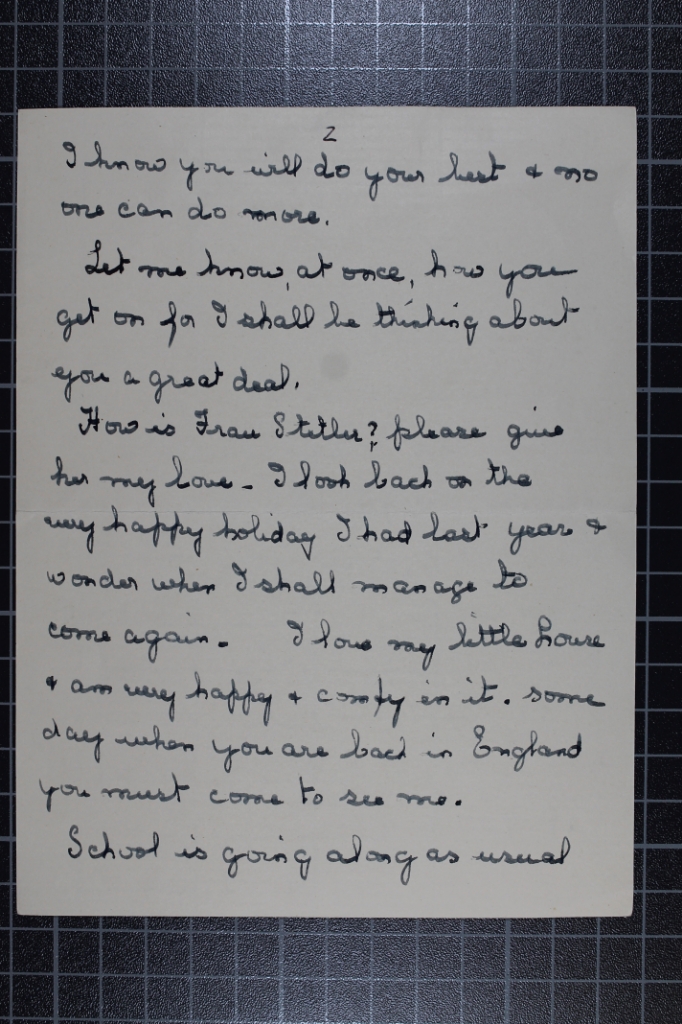 2
I know you will do your best & no
one can do more.
Let me know, at once, how you
get on for I shall be thinking about
you a great deal.
How is Frau Stetler? please give
her my love - I look back on the
very happy holiday I had last year &
wonder when I shall manage to
come again. I love my little house
& am very happy & comfy in it. some
day when you are back in England
you must come to see me.
School is going along as usual